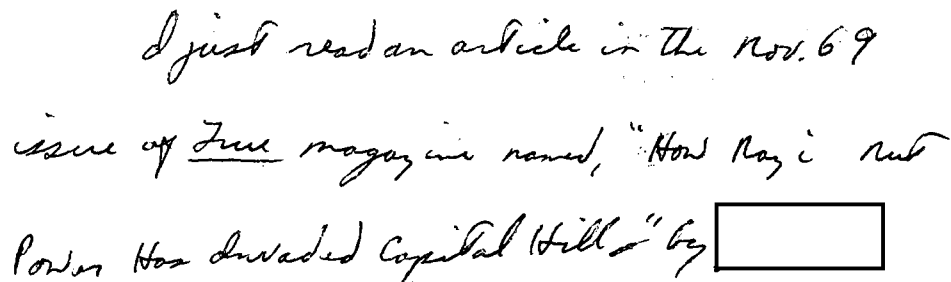 I just read an article in the Nov. 69
issue of True magazine named, "How Nazi Nut
Power Has Invaded Capital Hill" by